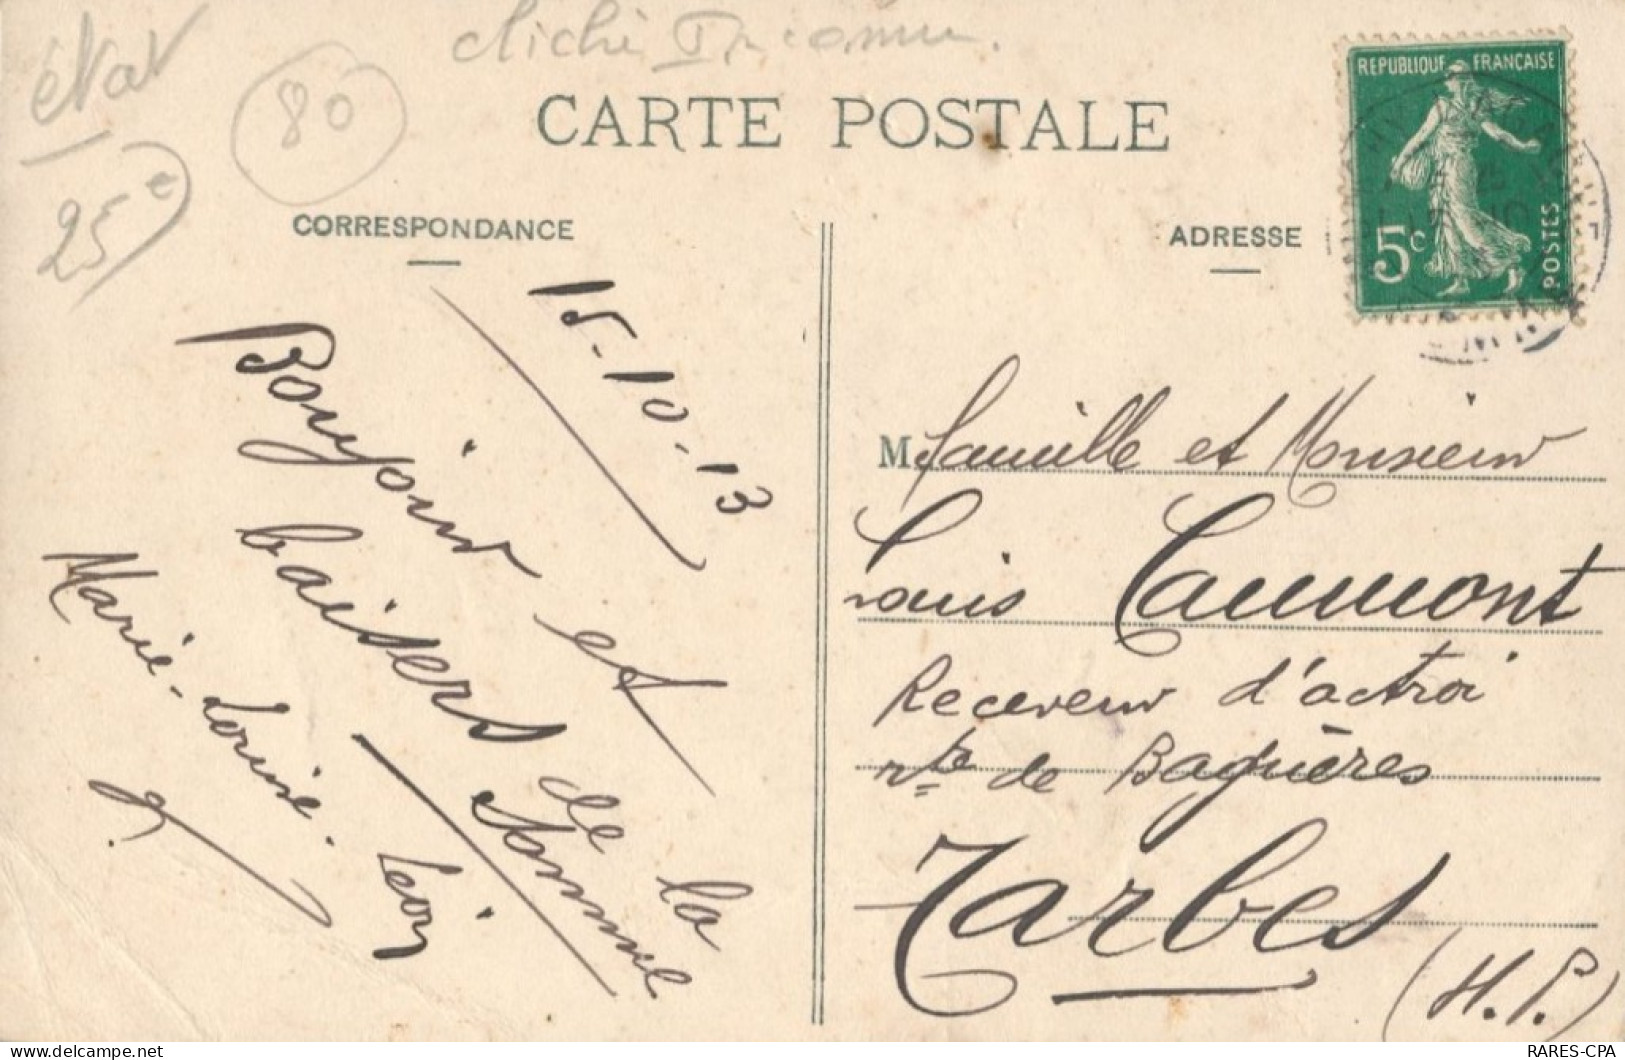 état
25 e
80
cliché Inconnu.
CARTE POSTALE
CORRESPONDANCE
ADRESSE
REPUBLIQUE FRANÇAISE
5c
POSTES
15-10-13
Bonjour et
baisers de la
Somme
Marie-Louise. Léon
M Famille et Monsieur
Louis Caumont
Receveur d'actroi
rte de Bagnères
Tarbes
(H.P.)
RARES-CPA